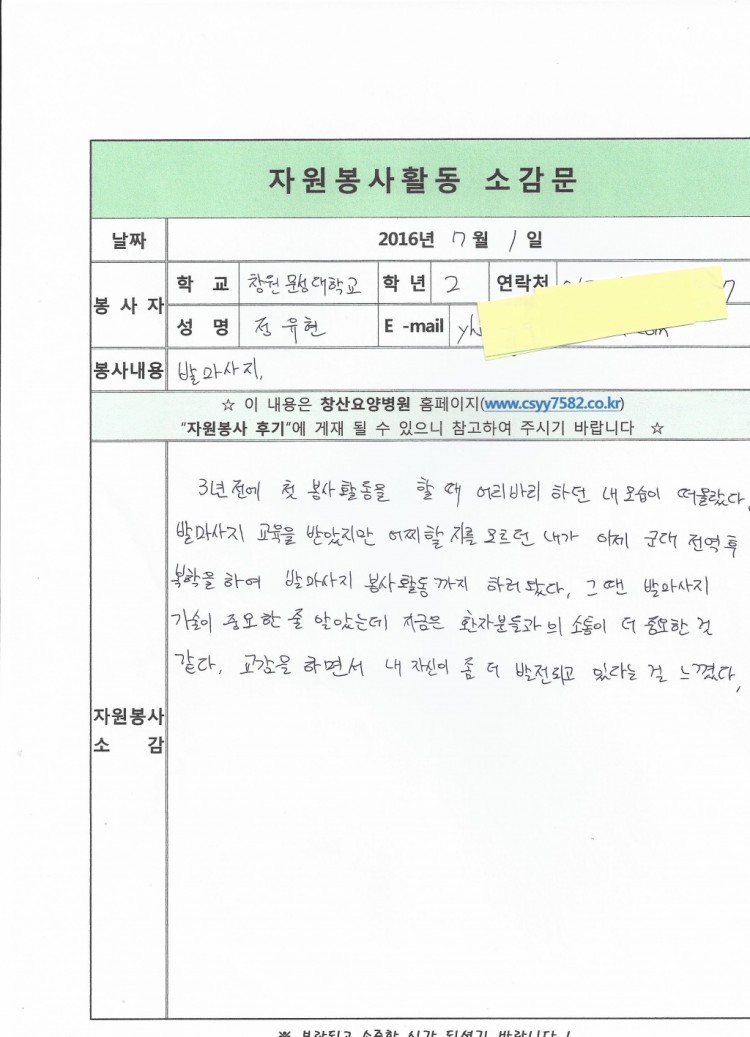 자원봉사활동 소감문
날짜 2016년 7월 1일
봉사자 학교 창원문성대학교 학년 2 연락처
성명 정유현 E-mail
봉사내용 발마사지.
☆ 이 내용은 창산요양병원 홈페이지(www.csyy7582.co.kr)
"자원봉사 후기"에 게재 될 수 있으니 참고하여 주시기 바랍니다 ☆
3년전에 첫 봉사활동을 할 때 어리바리 하던 내 모습이 떠올랐다.
발마사지 교육을 받았지만 어찌할 지를 모르던 내가 이제 군대 전역 후
복학을 하여 발마사지 봉사활동까지 하러 왔다. 그 땐 발마사지
기술이 중요한 줄 알았는데 지금은 환자분들과의 소통이 더 중요한 것
같다. 교감을 하면서 내 자신이 좀 더 발전되고 있다는 걸 느꼈다.
자원봉사
소감
※ 보람되고 소중한 시간 되셨기 바랍니다 !